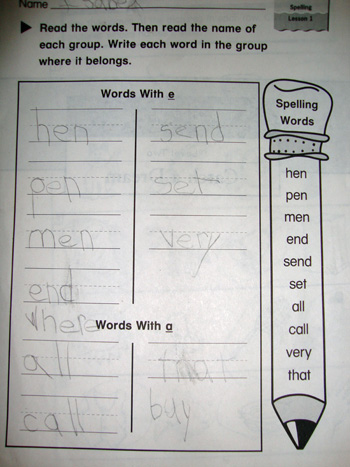 Name Isabel
Spelling
Lesson 1
Read the words. Then read the name of
each group. Write each word in the group
where it belongs.
Words With e
hen send
pen set
men very
end
where
Words With a
all that
call buy
Spelling
Words
hen
pen
men
end
send
set
all
call
very
that